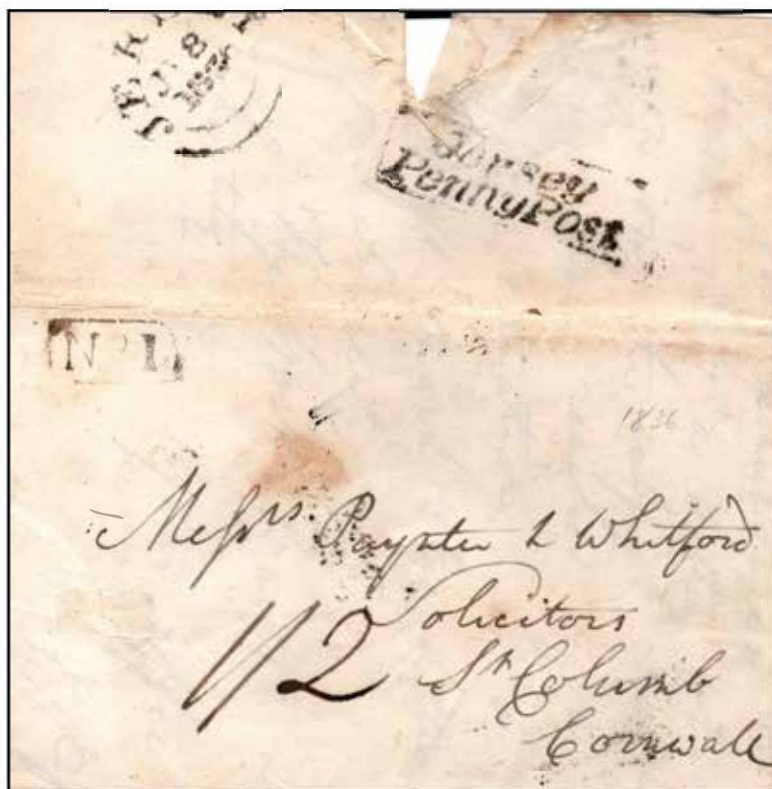 JERSEY
Jersey
Penny Post
No 1
1836
Messrs Paynter & Whitford
Solicitors
1/2
St Columb
Cornwall